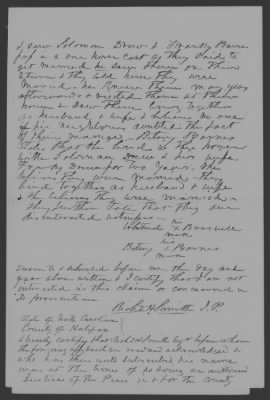 I saw Solomon Drew & Frankey
up in a one horse cart as they said to
get married he says there on their
return & they told him they were
married - he knew them many years
afterwards & visited them at their
house & saw them living together
as husband & wife & where no one
of his neighbors doubted the fact
of their marriage. Betsey Barnes
states that she lived at the house
with Solomon Drew & his wife
Franky Drew for two years, she
believes they were married, they
lived together as husband & wife
& she believes they were married -
They further state that they are
disinterested witnesses -
his
X
mark
Betsey X Barnes
mark
Sworn to & subscribed before me the day and
year above written & I certify that I am not
interested in this claim or concerned in
its prosecution
Richd H Smith J.P.
State of North Carolina
County of Halifax
I hereby certify that Richd H Smith Esqr before whom
the foregoing affidavit was made and acknowledged &
who has thereunto subscribed his name
was at the time of so doing an authorized
Justice of the Peace in & for the county